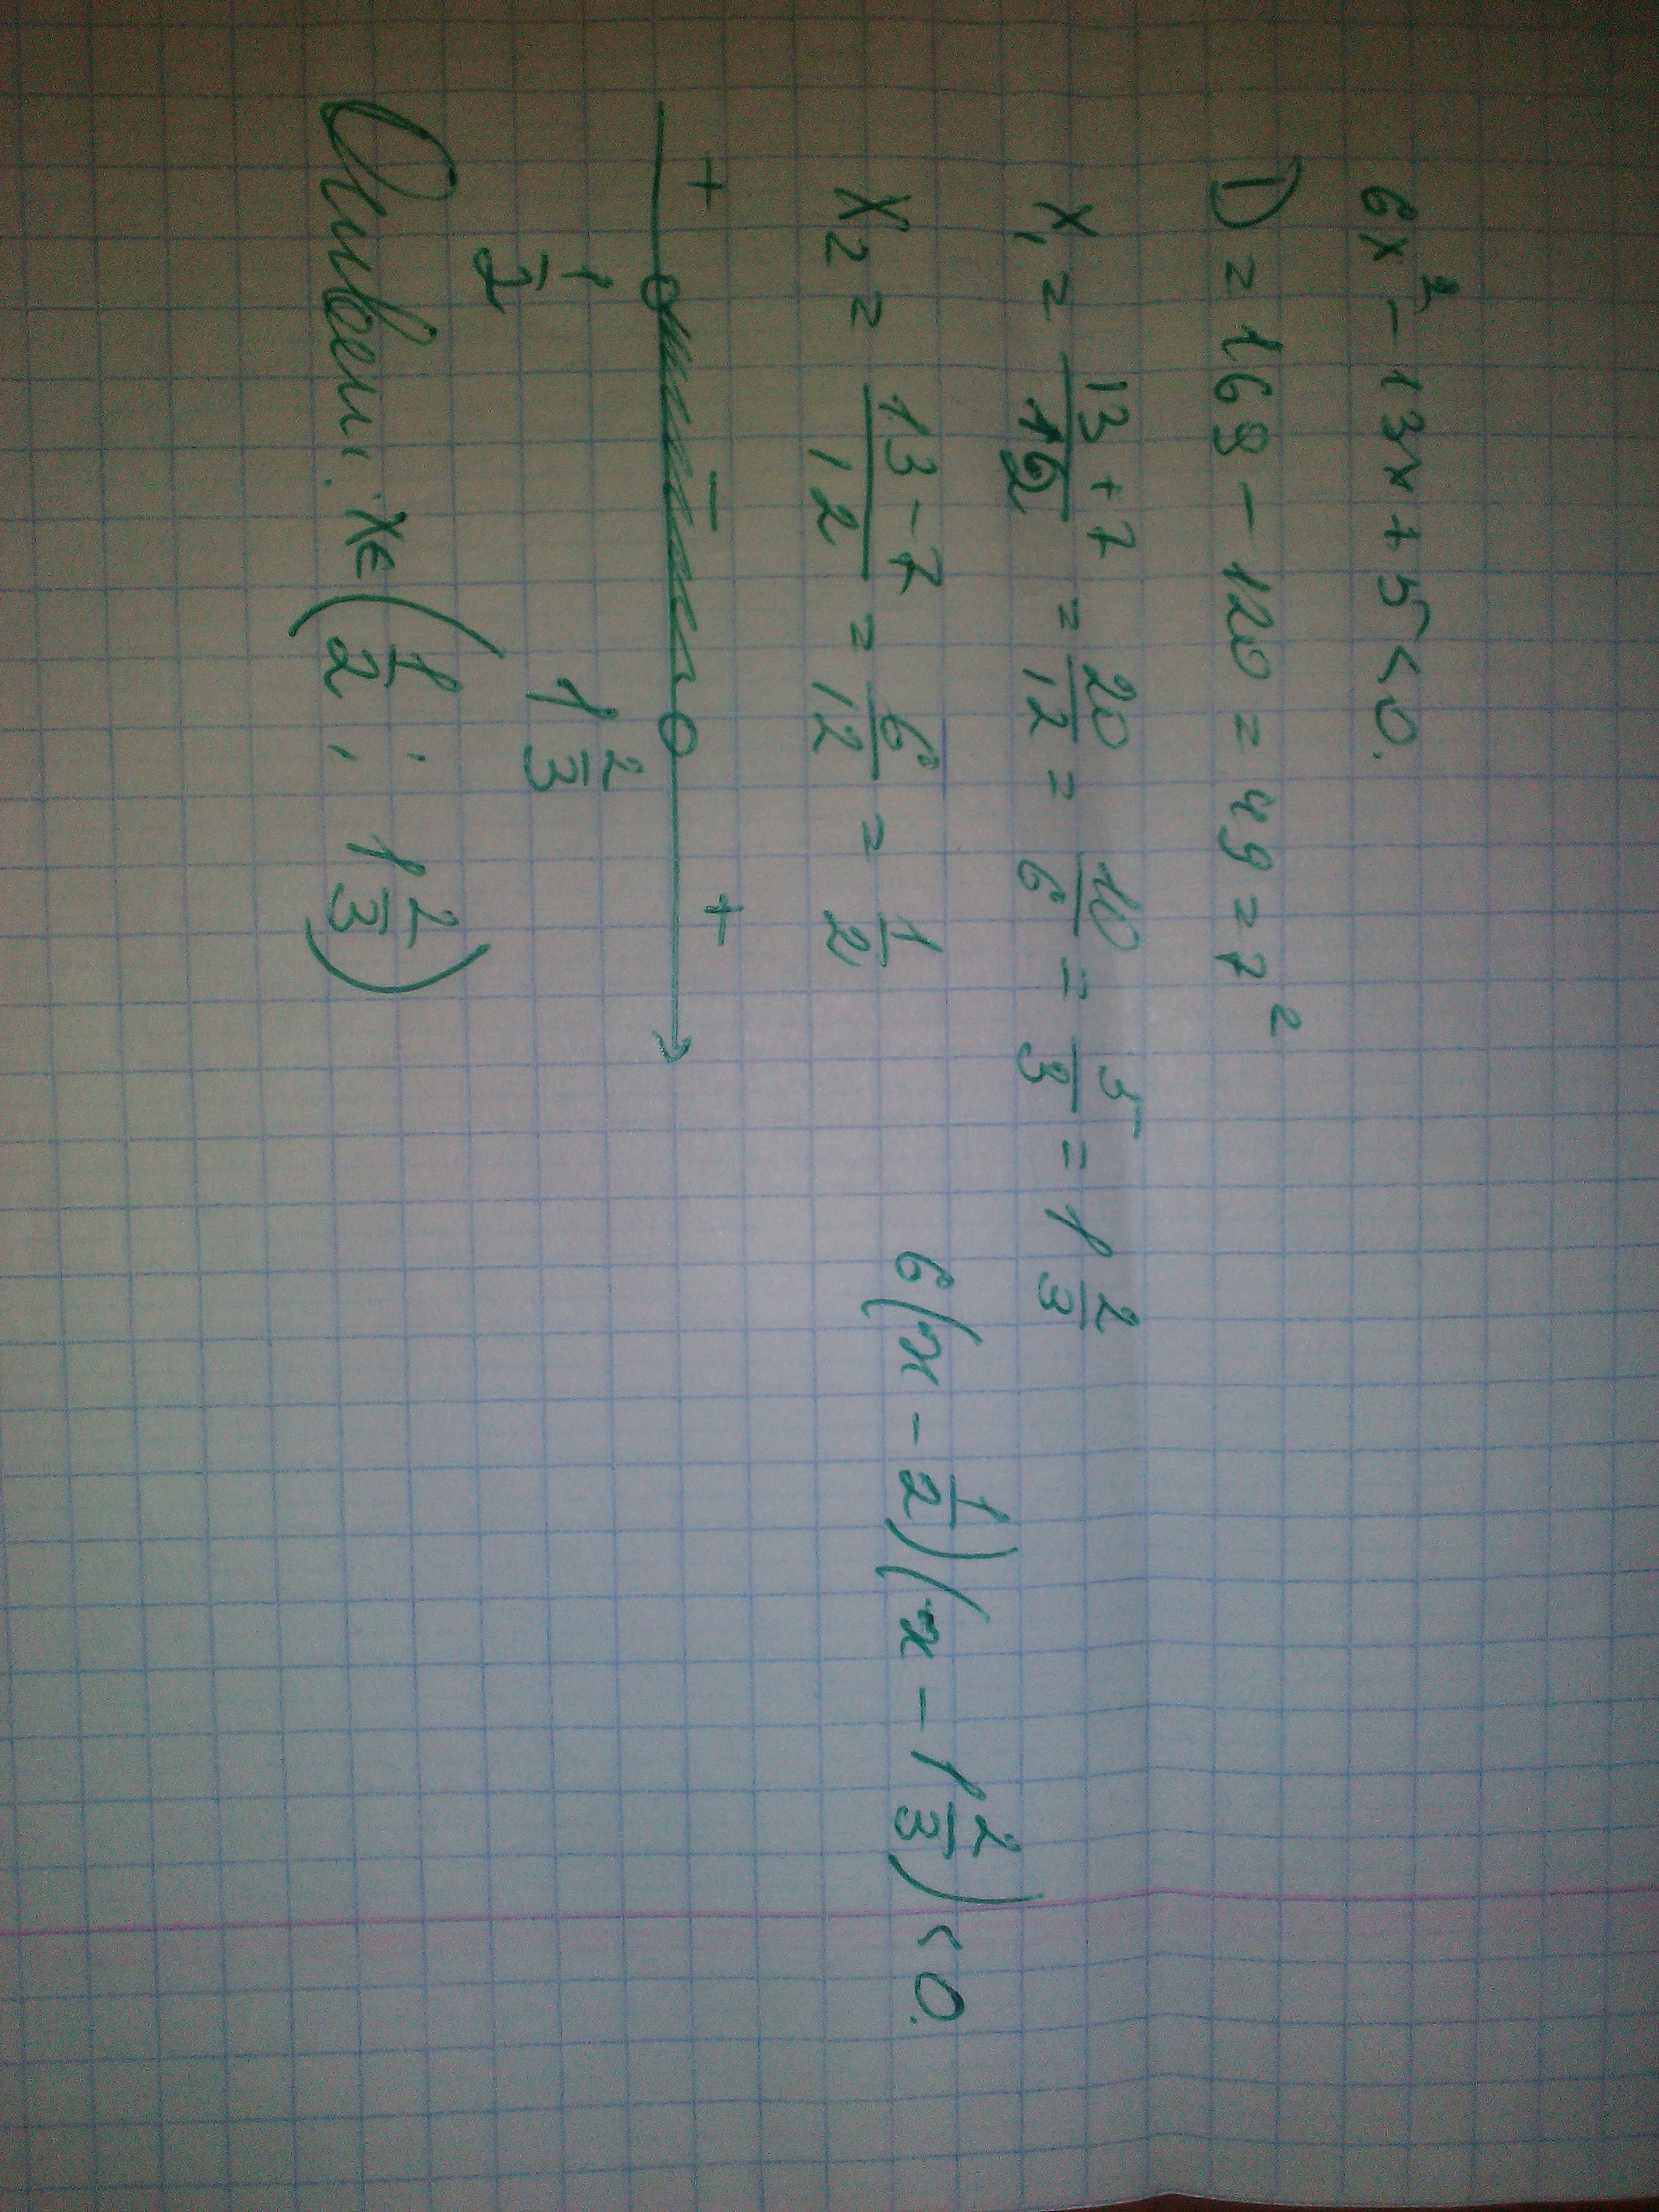 6x² - 13x + 5 < 0.
D = 169 - 120 = 49 = 7²
x₁ = \frac{13+7}{12} = \frac{20}{12} = \frac{10}{6} = \frac{5}{3} = 1\frac{2}{3}
x₂ = \frac{13-7}{12} = \frac{6}{12} = \frac{1}{2}
6(x - \frac{1}{2})(x - 1\frac{2}{3}) < 0.
+ - +
\frac{1}{2} 1\frac{2}{3}
Ответ: x∈(\frac{1}{2}; 1\frac{2}{3})